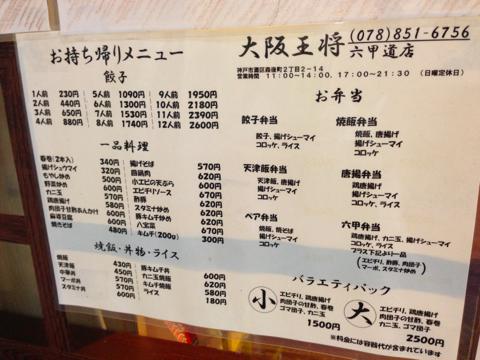 お持ち帰りメニュー
餃子
1人前 230円 5人前 1090円 9人前 1950円
2人前 440円 6人前 1300円 10人前 2180円
3人前 650円 7人前 1530円 11人前 2390円
4人前 880円 8人前 1740円 12人前 2600円
一品料理
春巻(2本入) 340円
揚げシュウマイ
もやし炒め
野菜炒め
カニ玉
鶏唐揚げ
肉団子甘酢あんかけ
麻婆豆腐
焼きそば 480円
揚げそば 570円
小エビの天ぷら
エビチリソース
酢豚
スタミナ炒め
豚キムチ炒め
八宝菜
キムチ(200g) 300円
焼飯・丼物・ライス
焼飯 430円
天津飯 450円
中華丼 570円
マーボ丼
スタミナ丼 600円
豚キムチ丼 600円
カニ玉焼飯
キムチ焼飯 580円
ライス 180円
大阪王将
(078)851-6756
六甲道店
営業時間 11:00~14:00、17:00~21:30 (日曜定休日)
お弁当
餃子弁当
餃子、揚げシューマイ
コロッケ、ライス
焼飯弁当
焼飯、唐揚げ
揚げシューマイ
コロッケ
天津飯弁当
天津飯、唐揚げ
揚げシューマイ
コロッケ
唐揚弁当
唐揚げ、揚げシューマイ
コロッケ、ライス
ペア弁当
焼飯、焼そば
唐揚げ、揚げシューマイ
コロッケ
六甲弁当
鶏唐揚げ、カニ玉、揚げシューマイ
コロッケ、ライス
プラス下記より一品
(エビチリ、酢豚、肉団子
マーボ、スタミナ炒め)
バラエティパック
小
エビチリ、鶏唐揚げ
肉団子の甘酢、春巻
ゴマ団子、カニ玉
1500円
大
エビチリ、鶏唐揚げ
肉団子の甘酢、春巻
カニ玉、ゴマ団子
2500円
※料金には容器代が含まれています